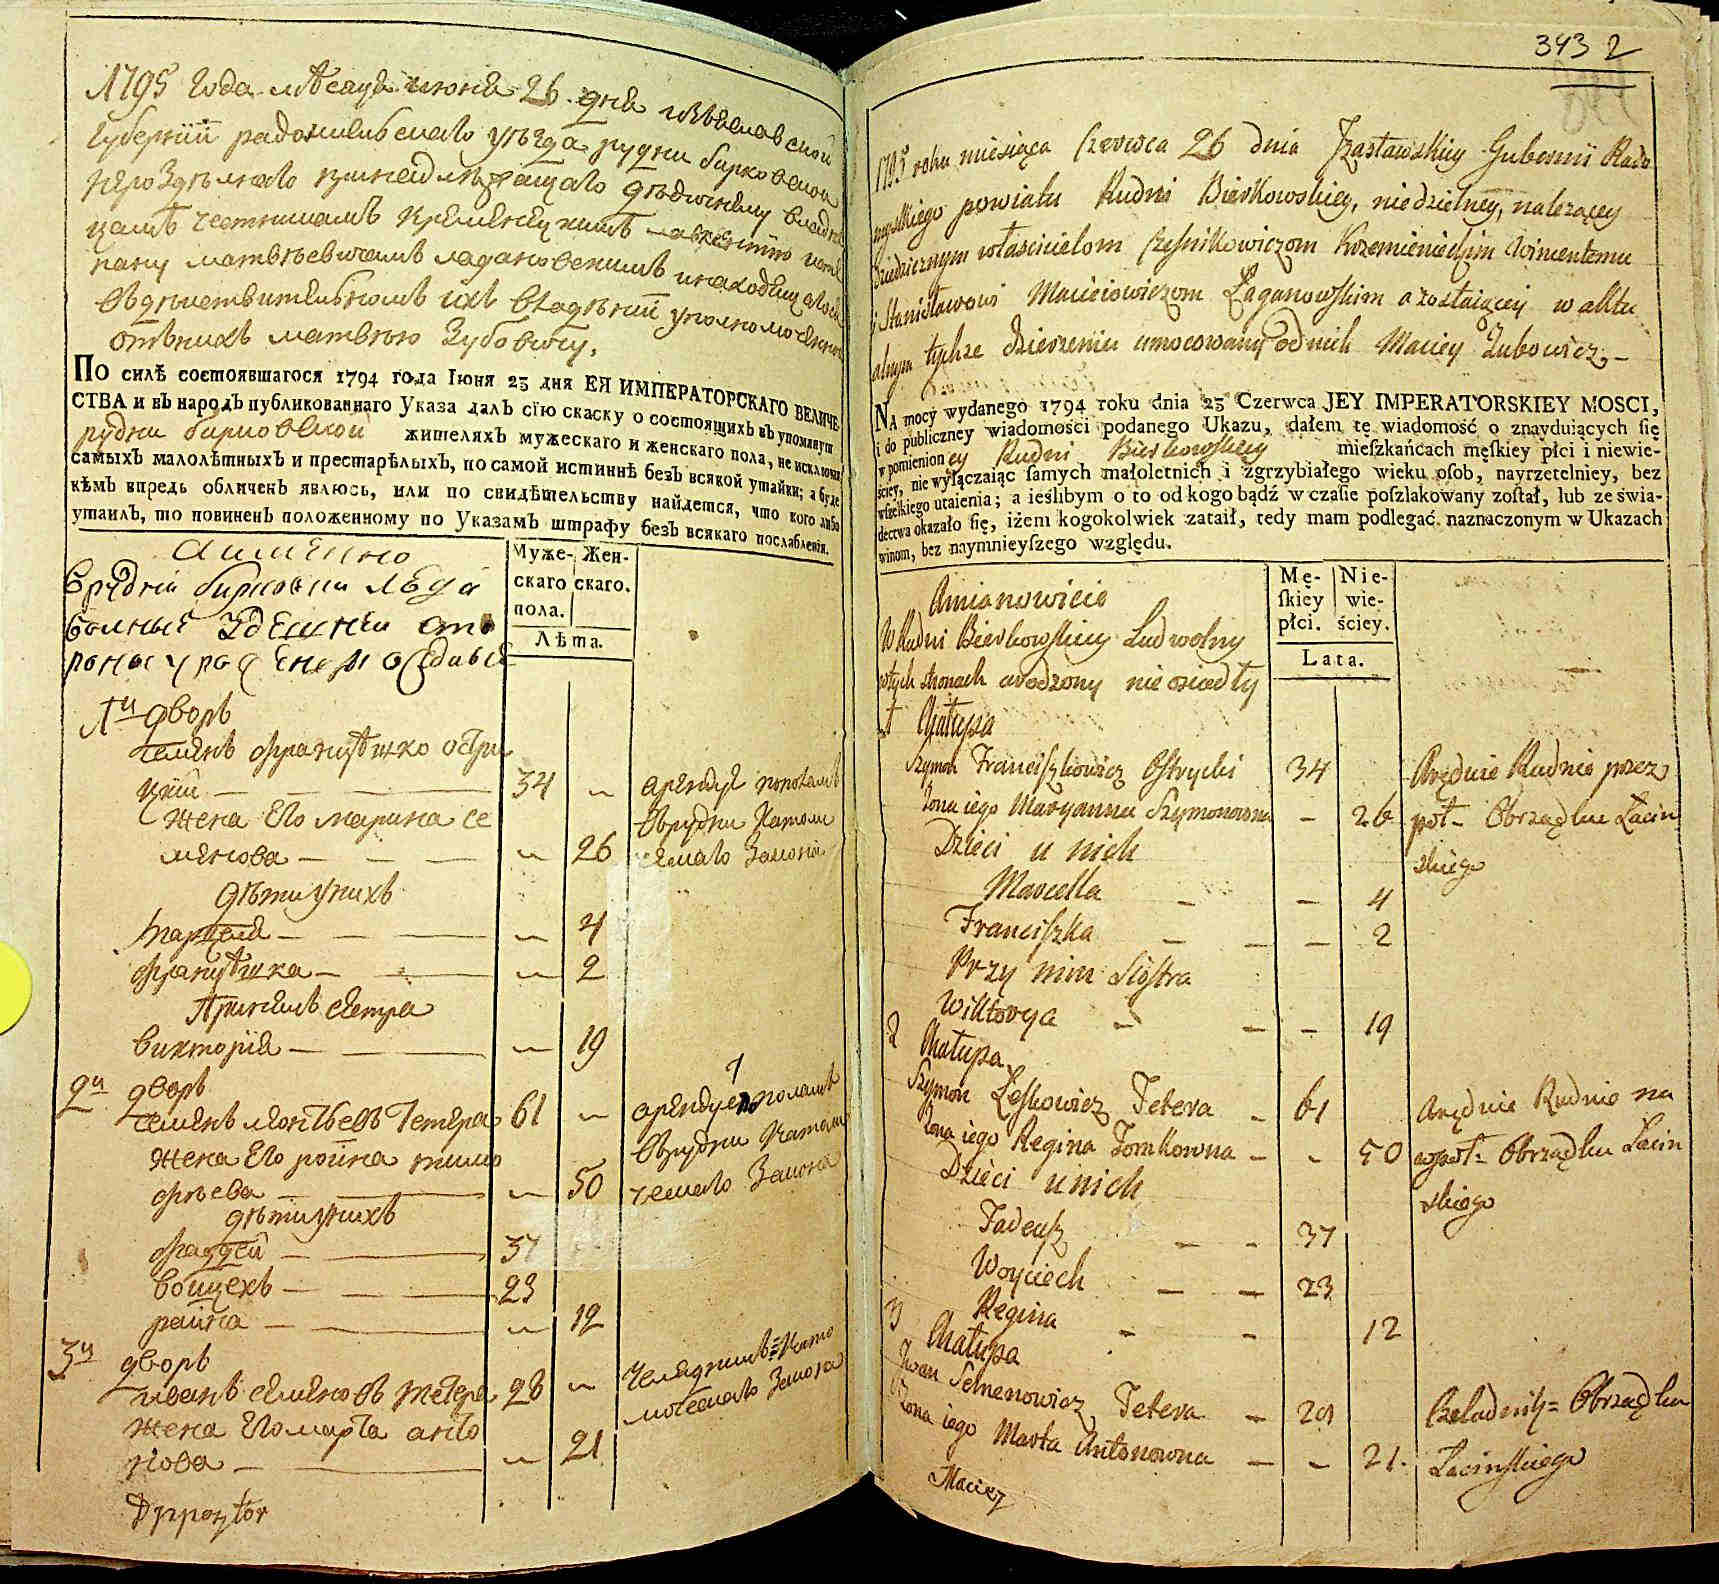 1795 года мѣсяца июня 26 дня Изѣславской
Губернїй радомисльскаго уѣзда рудни бирковской
нероздѣлнаго принадлѣжащаго дѣдичнему владѣл
цамъ чесниковичамъ кременецкимъ
пану матвѣевичамъ лагановскимъ и находящагося
вдѣйствительномъ ихъ владѣнїй уполномоченной
отънихъ матвѣю Зубовичу,
ПО силѣ состоявшагося 1794 года Іюня 23 дня ЕЯ ИМПЕРАТОРСКАГО ВЕЛИЧЕ
СТВА и въ народъ публикованнаго Указа далъ сїю скаску о состоящихъ въ упомянут
рудни бирковской жителяхъ мужескаго и женскаго пола, не исключая
самыхъ малолѣтныхъ и престарѣлыхъ, по самой истиннѣ безъ всякой утайки; а буде
кѣмъ впредь обличенъ явлюсь, или по свидѣтельству найдется, что кого либо
утаилъ, то повиненъ положенному по Указамъ штрафу безъ всякаго послабленїя.
Аимянно
Врудни бирковки люди
волные здешнеи сто
роны уроженеи оседлые
Муже-скаго пола. Жен-скаго.
Лѣта.
1й дворъ
Семенъ францѣшко остри
цкий — 34 — арендуе пополамъ
жена Его марина се врудни Католи
менова — 26 ческаго закона
дѣти унихъ
марцеля — 4
францѣшка — 2
Принемъ сестра
викторїя — 19
2й дворъ
Семенъ леонтьевъ Тетера 61 — арендуе пополамъ
жена Его роина тимо врудни Католи
фѣева — 50 ческаго Закона
дѣти унихъ
фаддей — 37
войцехъ — 23
раина — 12
3й дворъ
иванъ семеновъ тетера 28 — челядникъ = Като
жена Его марта анто лическаго Закона
нова — 21
343 2
1795 roku miesiąca Czerwca 26 dnia Jzasławskiey Gubernii Rado
myslkiego powiatu Rudni Bierkowskiey, niedzielney, należącey
dziedzicznym właścicielom Czesnikowiczom Krzemienieckim Wincentemu
i Stanisławowi Macieiowiczom Łaganowskim a zostaiącey w aktu
alnym tychże dzierżeniu umocowany od nich Maciey Zubowicz, —
NA mocy wydanego 1794 roku dnia 23 Czerwca JEY IMPERATORSKIEY MOSCI,
i do publiczney wiadomości podanego Ukazu, dałem tę wiadomość o znayduiących się
w pomienion ey Rudni Bierkowskiey mieſzkańcach męſkiey płci i niewie-
ściey, nie wyłączaiąc ſamych małoletnich i zgrzybiałego wieku oſob, nayrzetelniey, bez
wſzelkiego utaienia; a ieślibym o to od kogo bądź w czaſie poſzlakowany zoſtał, lub ze świa-
dectwa okazało ſię, iżem kogokolwiek zataił, tedy mam podlegać naznaczonym w Ukazach
winom, bez naymnieyſzego względu.
Amianowicie
W Rudni Bierkowskiey Lud wolny
wtych stronach urodzony nie osiadły
Mę-ſkiey płci. Nie-wie-ściey.
Lata.
1 Chałupa
Szymon Franciſzkowicz Ostrycki 34 Aręduie Rudnie przez
Żona iego Maryanna Szymonowna — 26 poł — Obrządku Łacin
Dzieci u nich skiego
Marcella — — 4
Franciſzka — — — 2
Przy nim Siostra
Wiktorya — — — 19
2 Chałupa
Szymon Leſkowicz Tetera — 61 Aręduie Rudnie na
Żona iego Regina Tomkowna — - 50 wpoł = Obrządku Łacin
Dzieci u nich skiego
Tadeuſz — — 37
Woyciech — — 23
Regina — — 12
3 Chałupa
Jwan Semenowicz Tetera — 29 Czeladnik = Obrządku
Żona iego Marta Antonowna — — 21. Łacinſkiego
Maciey